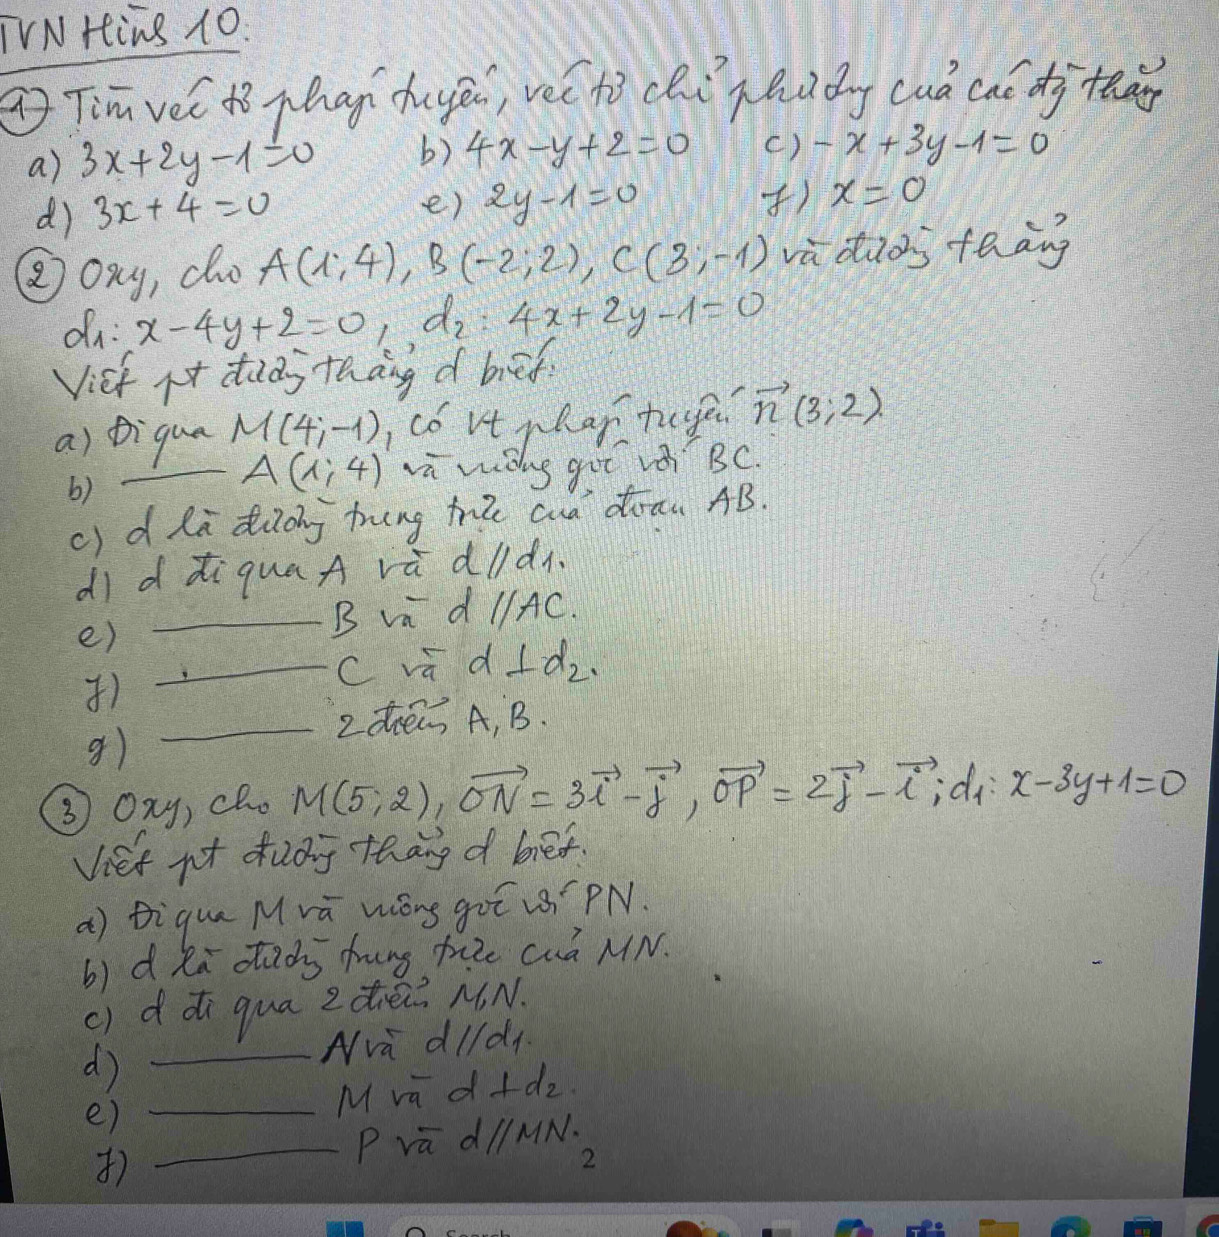 TVN Hình 10.
① Tìm véc tơ pháp tuyến, véc tơ chỉ phương của các đg thẳng
a) 3x+2y-1=0 b) 4x-y+2=0 c) -x+3y-1=0
d) 3x+4=0 e) 2y-1=0 f) x=0
② Oxy, cho A(1;4), B(-2;2), C(3;-1) và đường thẳng
d₁: x-4y+2=0, d₂: 4x+2y-1=0
Viết pt đường thẳng d biết:
a) Đi qua M(4;-1), có vt pháp tuyến n⃗(3;2).
b) ——— A(1;4) và vuông góc với BC.
c) d là đường trung trực của đoạn AB.
d) d đi qua A và d//d₁.
e) ——— B và d//AC.
f) ——— C và d⊥d₂.
g) ——— 2 điểm A, B.
③ Oxy, cho M(5;2), ON⃗ = 3i⃗ - j⃗, OP⃗ = 2j⃗ - i⃗; d₁: x-3y+1=0
Viết pt đường thẳng d biết.
a) Đi qua M và vuông góc với PN.
b) d là đường trung trực của MN.
c) d đi qua 2 điểm M,N.
d) ——— N và d//d₁.
e) ——— M và d⊥d₂.
f) ——— P và d//MN.
2
Search